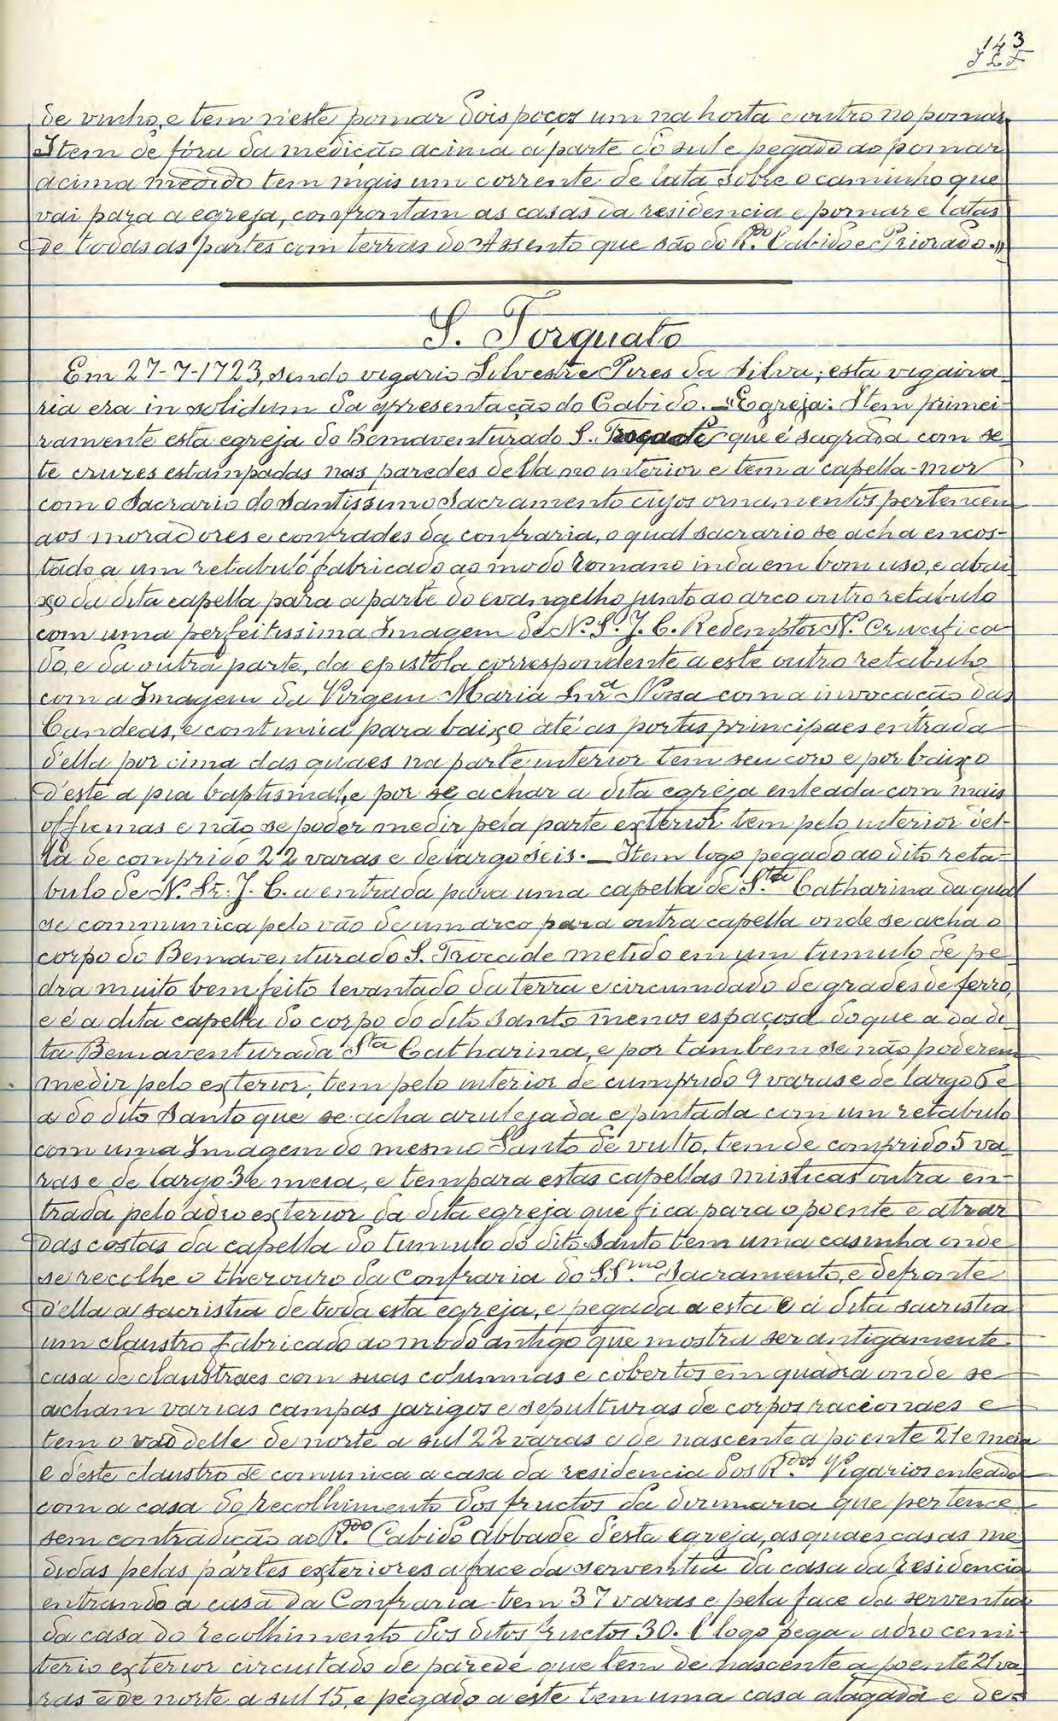 143
de vinho, e tem n'este pomar dois poços um na horta e outro no pomar.
Item de fóra da medição acima a parte do sul e pegado ao pomar
acima medido tem mais um corrente de lata sobre o caminho que
vai para a egreja, confrontam as casas da residencia e pomar e latas
de todas as partes com terras do Assento que são do R.do Cabido e Priorado."
S. Torquato
Em 27-7-1723, sendo vigario Silvestre Pires da Silva; esta vigaira-
ria era in solidum da apresentação do Cabido. — "Egreja: Item primei-
ramente esta egreja do Bemaventurado S. que é sagrada com se-
te cruzes estampadas nas paredes della no interior e tem a capella-mor
com o Sacrario do Santissimo Sacramento cujos ornamentos pertencem
aos moradores e confrades da confraria, o qual sacrario se acha encos-
tado a um retabulo fabricado ao modo Romano inda em bom uso, e abai-
xo da dita capella para a parte do evangelho junto ao arco outro retabulo
com uma perfeitissima Imagem de N. S. J. C. Redemptor N. Crucifica-
do, e da outra parte, da epistola correspondente a este outro retabulo
com a Imagem da Virgem Maria Snr.a Nossa com a invocação das
Candeas, e continúa para baixo até as portas principaes entrada
d'ella por cima das quaes na parte interior tem seu coro e por baixo
d'este a pia baptismal, e por se achar a dita egreja enleada com mais
officinas e não se poder medir pela parte exterior tem pelo interior del-
la de comprido 22 varas e de largo seis. — Item logo pegado ao dito reta-
bulo de N. Sr. J. C. a entrada para uma capella de S.ta Catharina da qual
se communica pelo vão de um arco para outra capella onde se acha o
corpo do Bemaventurado S. Trocade metido em um tumulo de pe-
dra muito bem feito levantado da terra e circumdado de grades de ferro,
e é a dita capella do corpo do dito Santo menos espaçosa do que a da di-
ta Bemaventurada S.ta Catharina, e por tambem se não poderem
medir pelo exterior, tem pelo interior de cumprido 9 varas e de largo 6 e
a do dito Santo que se acha azulejada e pintada com um retabulo
com uma Imagem do mesmo Santo de vulto, tem de comprido 5 va-
ras e de largo 3 e meia, e tem para estas capellas misticas outra en-
trada pelo adro exterior da dita egreja que fica para o poente e atraz
das costas da capella do tumulo do dito Santo tem uma casinha onde
se recolhe o thezouro da Confraria do SS.mo Sacramento, e defronte
d'ella a sacristia de toda esta egreja, e pegada a esta e á dita sacristia
um claustro fabricado ao modo antigo que mostra ser antigamente
casa de claustraes com suas columnas e cobertos em quadra onde se
acham varias campas jazigos e sepulturas de corpos racionaes e
tem o vão delle de norte a sul 22 varas e de nascente a poente 21 e meia
e d'este claustro se comunica a casa da residencia dos R.dos Vigarios enleada
com a casa do recolhimento dos fructos da dizimaria que pertence
sem contradição ao R.do Cabido Abbade d'esta egreja, as quaes casas me-
didas pelas partes exteriores a face da serventia da casa da residencia
entrando a casa da Confraria tem 37 varas e pela face da serventia
da casa do recolhimento dos ditos fructos 30. E logo pega o adro cemi-
terio exterior circuitado de parede que tem de nascente a poente 21 va-
ras e de norte a sul 15, e pegado a este tem uma casa alagada e de-